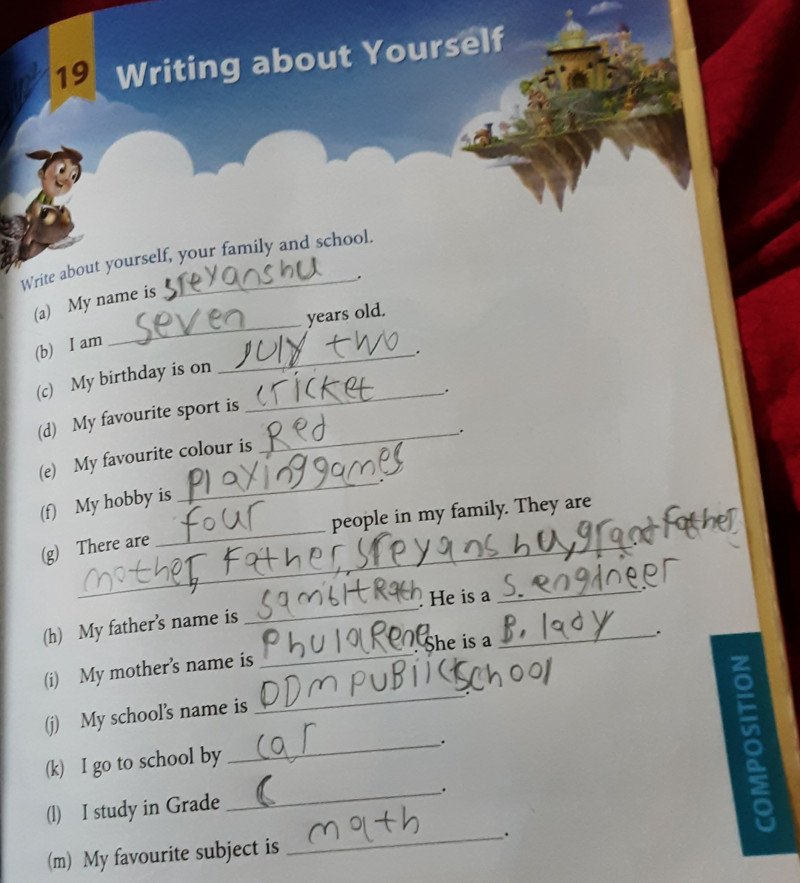 19 Writing about Yourself
Write about yourself, your family and school.
(a) My name is sreyanshu.
(b) I am seven years old.
(c) My birthday is on July two.
(d) My favourite sport is cricket.
(e) My favourite colour is Red.
(f) My hobby is playing games.
(g) There are four people in my family. They are
mother, father, sreyanshu, grantfather
(h) My father's name is Sambit Rath. He is a S. engineer.
(i) My mother's name is She is a B. lady.
(j) My school's name is DDM PUBlic School.
(k) I go to school by car.
(l) I study in Grade .
(m) My favourite subject is math.
COMPOSITION